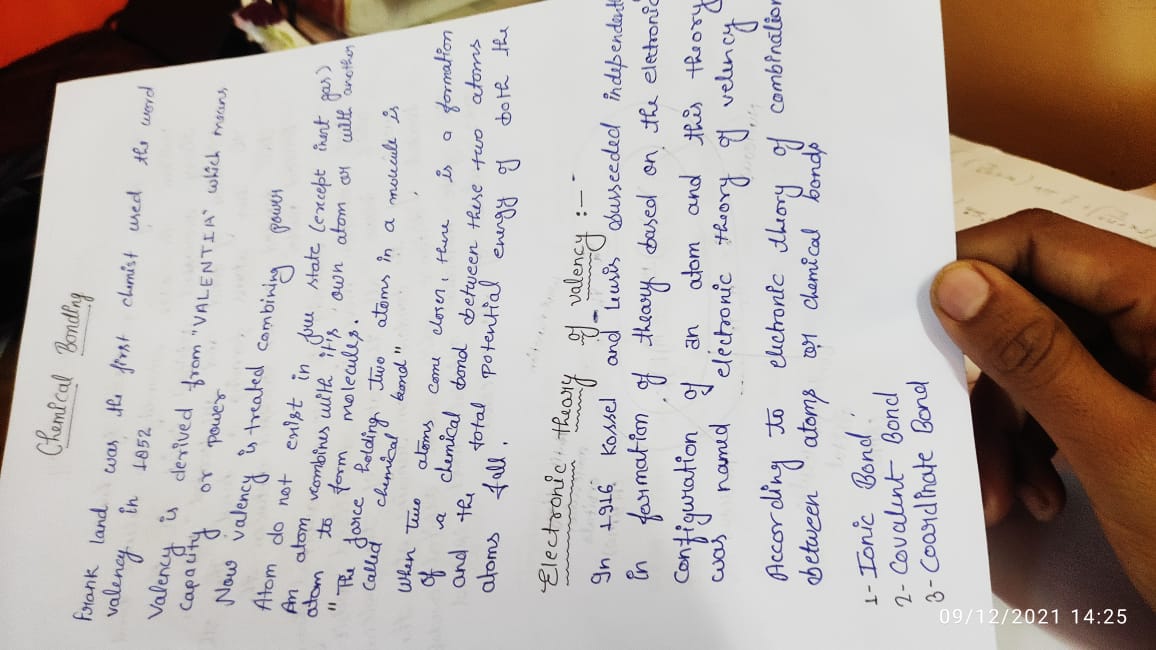 Chemical Bonding
Frank land was the first chemist used the word
valency in 1852
Valency is derived from "VALENTIA" which means
capacity or power
Now valency is treated combining power
Atom do not exist in free state (except inert gas)
An atom combines with it's own atom or with another
atom to form molecules.
" The force holding two atoms in a molecule is
called chemical bond"
When two atoms come closer, there is a formation
of a chemical bond between these two atoms
and the total potential energy of both the
atoms fall.
Electronic theory of valency :-
In 1916 Kossel and Lewis susseeded independent
in formation of theory based on the electronic
configuration of an atom and this theory
was named electronic theory of velency
According to electronic theory of combination
between atoms or chemical bonds
1- Ionic Bond
2- Covalent Bond
3- Coordinate Bond
09/12/2021 14:25